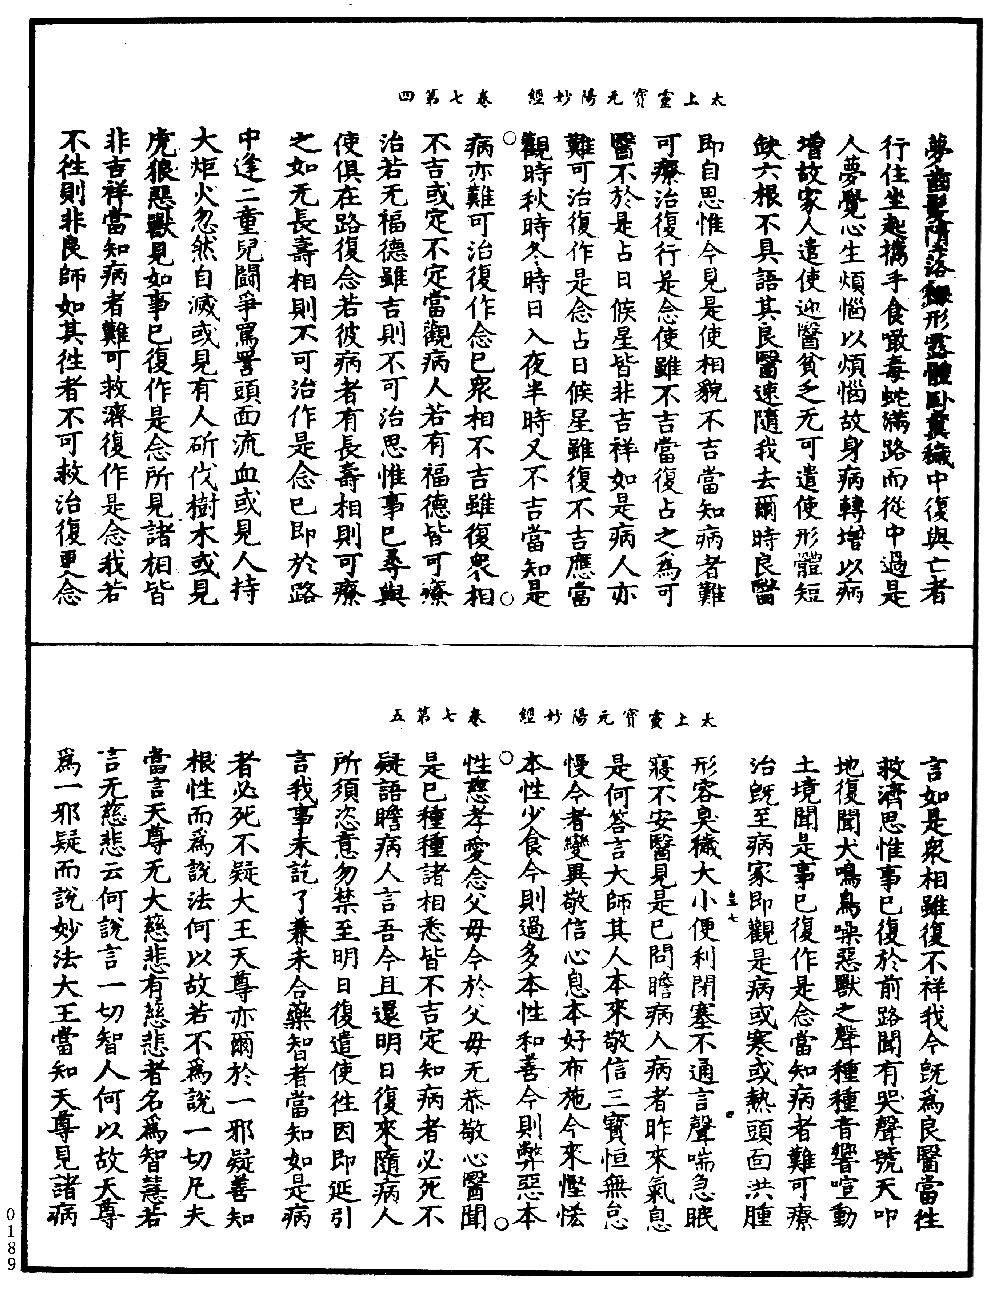 太上靈寶元陽妙經　卷七第四
夢齒髮墮落裸形露體臥糞穢中復與亡者
行住坐起攜手食噉毒蛇滿路而從中過是
人夢覺心生煩惱以煩惱故身病轉增以病
增故家人遣使迎醫貧乏无可遣使形體短
缺六根不具語其良醫速隨我去爾時良醫
即自思惟今見是使相貌不吉當知病者難
可療治復行是念使雖不吉當復占之為可
醫不於是占日候星皆非吉祥如是病人亦
難可治復作是念占日候星雖復不吉應當
觀時秋時冬時日入夜半時又不吉當知是
病亦難可治復作念已衆相不吉雖復衆相
不吉或定不定當觀病人若有福德皆可療
治若无福德雖吉則不可治思惟事已尋與
使俱在路復念若彼病者有長壽相則可療
之如无長壽相則不可治作是念已即於路
中逢二童兒鬪爭罵詈頭面流血或見人持
大炬火忽然自滅或見有人斫伐樹木或見
虎狼惡獸見如事已復作是念所見諸相皆
非吉祥當知病者難可救濟復作是念我若
不往則非良師如其往者不可救治復更念
太上靈寶元陽妙經　卷七第五
言如是衆相雖復不祥我今既為良醫當往
救濟思惟事已復於前路聞有哭聲號天叩
地復聞犬鳴鳥噪惡獸之聲種種音響喧動
土境聞是事已復作是念當知病者難可療
治既至病家即觀是病或寒或熱頭面洪腫
形容臭穢大小便利閉塞不通言聲喘急眠
寢不安醫見是已問瞻病人病者昨來氣息
是何答言大師其人本來敬信三寶恒無怠
慢今者變異敬信心息本好布施今來慳悋
本性少食今則過多本性和善今則弊惡本
性慈孝愛念父母今於父母无恭敬心醫聞
是已種種諸相悉皆不吉定知病者必死不
疑語瞻病人言吾今且還明日復來隨病人
所須恣意勿禁至明日復遣使往因即延引
言我事未訖了兼未合藥智者當知如是病
者必死不疑大王天尊亦爾於一邪疑善知
根性而為說法何以故若不為說一切凡夫
當言天尊无大慈悲有慈悲者名為智慧若
言无慈悲云何說言一切智人何以故天尊
為一邪疑而說妙法大王當知天尊見諸病
0189